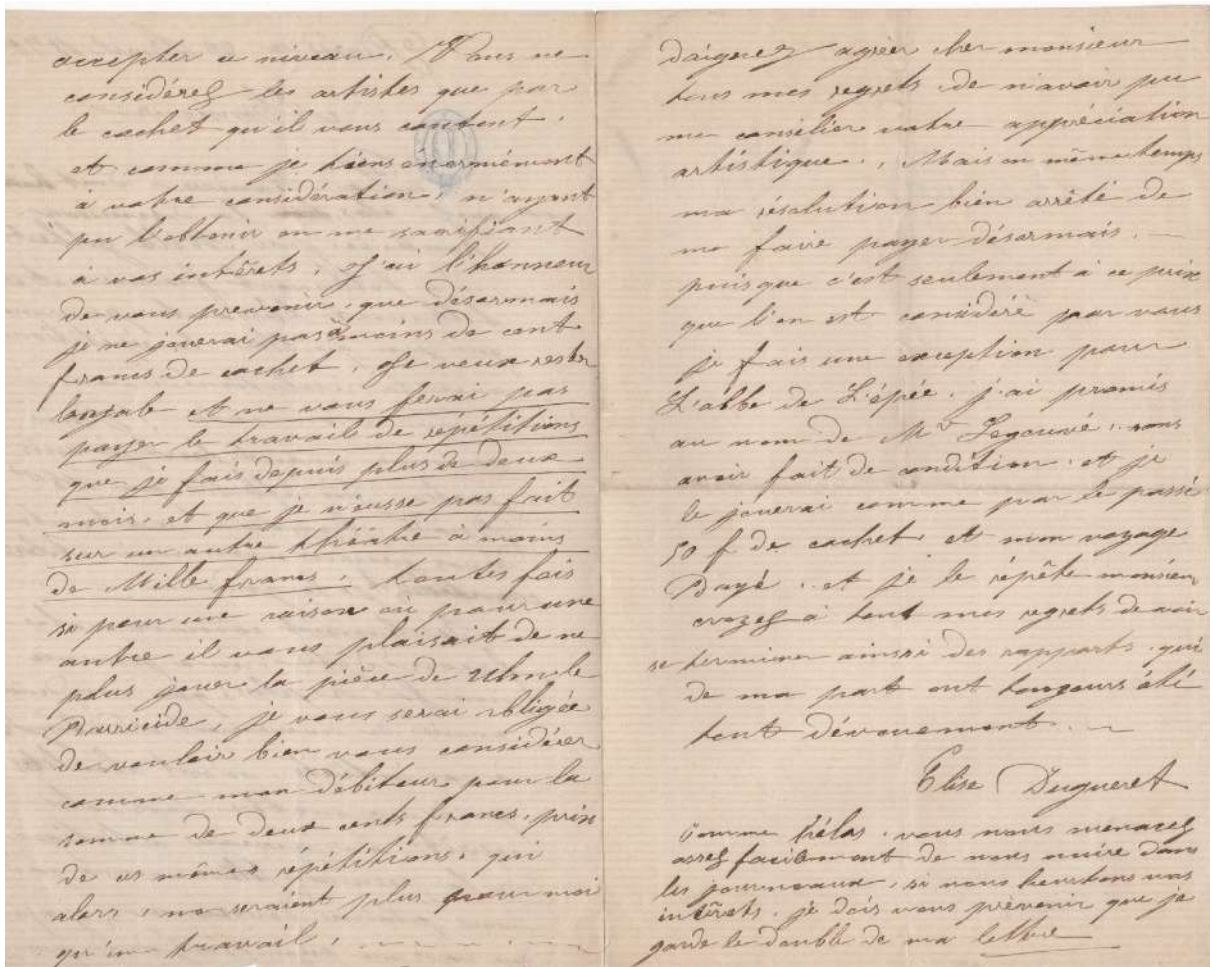 accepter ce niveau. Vous ne
considérez les artistes que par
le cachet qu'il vous coutent.
et comme je tiens énormément
à votre considération, n'ayant
pu l'obtenir en me sacrifiant
à vos intérêts, J'ai l'honneur
de vous prevenir, que désormais
je ne jouerai pas à moins de cent
francs de cachet, Je veux rester
loyale et ne vous ferai pas
payer le travail de répétitions
que je fais depuis plus de deux
mois, et que je n'eusse pas fait
sur un autre théâtre à moins
de Mille francs, toutes fois
si pour une raison où pour une
autre il vous plaisait de ne
plus jouer la pièce de Ulm le
Parricide, je vous serai obligée
de vouloir bien vous considérer
comme mon débiteur pour la
somme de deux cents francs, prix
de ces mêmes répétitions, qui
alors, ne seraient plus pour moi
qu'un travail,
Daignez agréer cher monsieur
tous mes regrets de n'avoir pu
me consilier votre appréciation
artistique., Mais en même temps
ma résolution bien arrêté de
me faire payer désormais. —
puisque c'est seulement à ce prix
que l'on est considéré par vous
je fais une exception pour
L'abbe de L'épée. j'ai promis
au nom de Mr Legouvé. sans
avoir fait de condition. et je
le jouerai comme par le passé
50 f de cachet, et mon voyage
Payé. et je le répête monsieur
croyez à tout mes regrets de voir
se terminer ainsi des rapports. qui
de ma part ont toujours été
tout dévouement. —
Elise Duguéret
Comme hélas. vous nous menacez
assez facilement de nous nuire dans
les journeaux, si nous heurtons vos
intérêts. je dois vous prévenir que je
garde le double de ma lettre